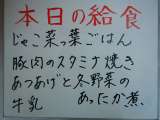 本日の給食
じゃこ菜っ葉ごはん
豚肉のスタミナ焼き
あつあげと冬野菜の
あったか煮
牛乳